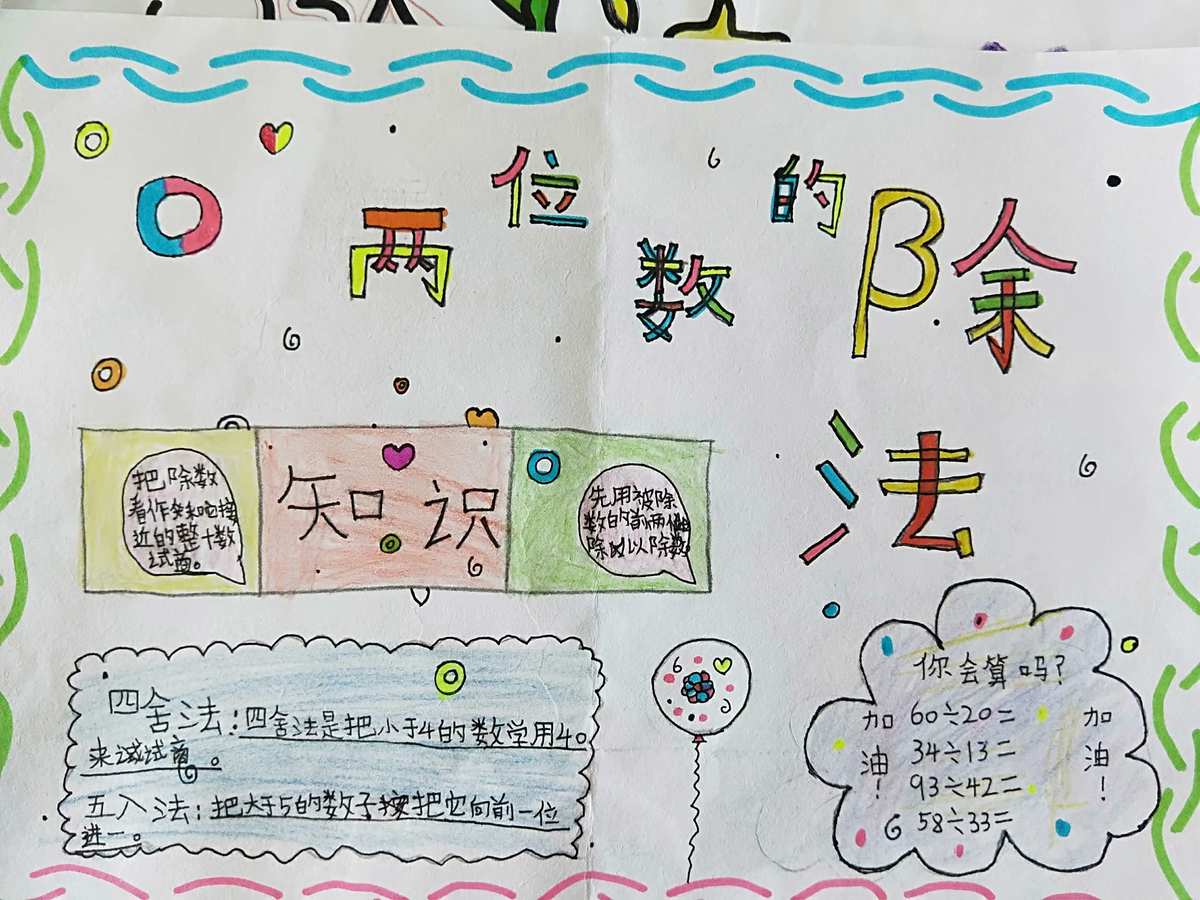 两位数的除法
把除数
看作和它接
近的整十数
试商。
知识
先用被除
数的前两位
除以除数
四舍法:四舍法是把小于4的数学用40
来试商。
五入法:把大于5的数子按把它向前一位
进一。
你会算吗?
加油!
60÷20=
34÷13=
93÷42=
58÷33=
加油!